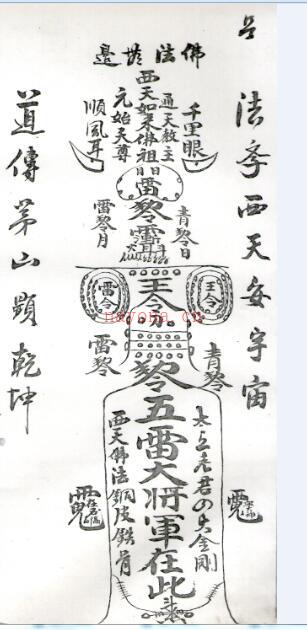 呂
法奉西天安宇宙
佛法無邊
千里眼
通天教主
西天如來佛祖
元始天尊
順風耳
雷
青黎日
雷黎月
王令
王令
雷令
青黎
雷黎
黎五雷大將軍在此
太上老君四大金剛
西天佛法銅皮鉄骨
道傳茅山顕乾坤
nayona.cn